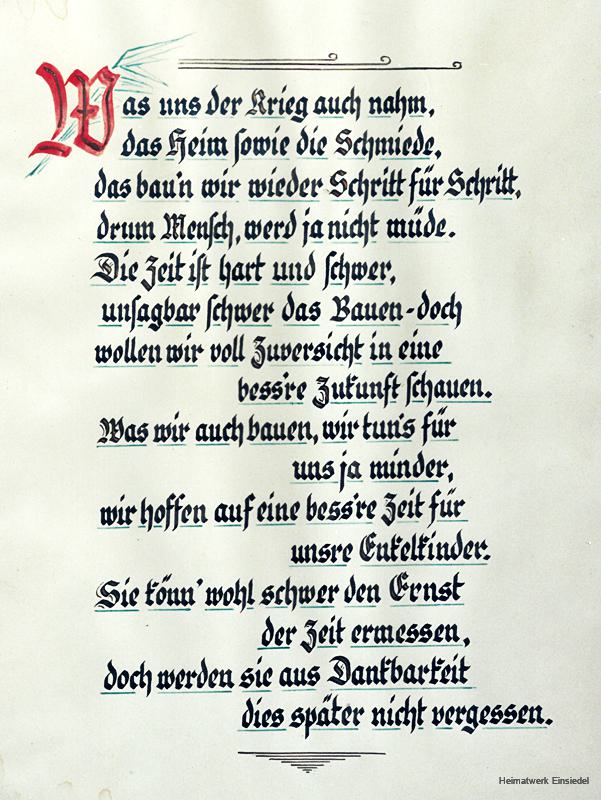 Was uns der Krieg auch nahm,
das Heim sowie die Schmiede,
das bau'n wir wieder Schritt für Schritt,
drum Mensch, werd ja nicht müde.
Die Zeit ist hart und schwer,
unsagbar schwer das Bauen-doch
wollen wir voll Zuversicht in eine
bess're Zukunft schauen.
Was wir auch bauen, wir tun's für
uns ja minder,
wir hoffen auf eine bess're Zeit für
unsre Enkelkinder.
Sie könn' wohl schwer den Ernst
der Zeit ermessen,
doch werden sie aus Dankbarkeit
dies später nicht vergessen.
Heimatwerk Einsiedel